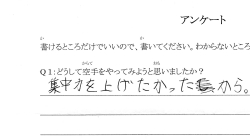 アンケート
書けるところだけでいいので、書いてください。わからないところ
Q1：どうして空手をやってみようと思いましたか？
集中力を上げたかったから。